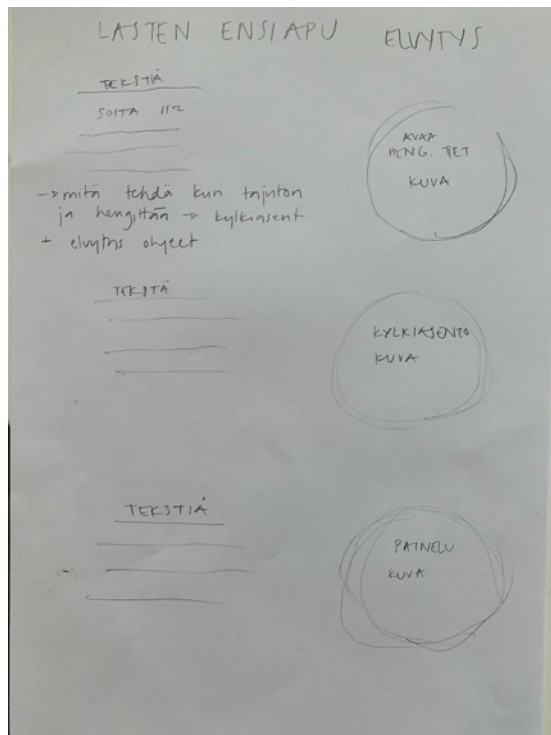 LASTEN ENSIAPU ELVYTYS
TEKSTIÄ
SOITA 112
AVAA
HENG. TIET
KUVA
-> mitä tehdä kun tajuton
ja hengittää -> kylkiasent
+ elvytys ohjeet
TEKSTÄ
KYLKIASENTO
KUVA
TEKSTIÄ
PAINELU
KUVA